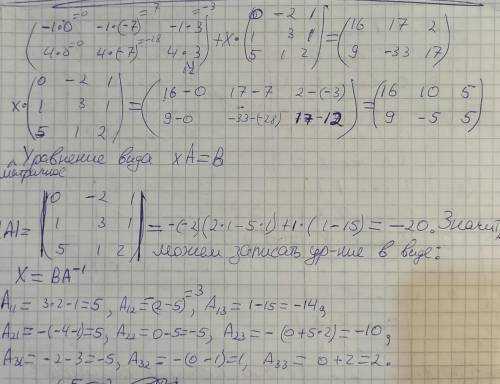 (-1·0 =0 -1·(-7) =7 -1·3 =-3
4·0 =0 4·(-7) =-28 4·3 12) + X·(0 -2 1
1 3 1
5 1 2) = (16 17 2
9 -33 17)
X·(0 -2 1
1 3 1
5 1 2) = (16-0 17-7 2-(-3)
9-0 -33-(-28) 17-12) = (16 10 5
9 -5 5)
Уравнение вида XA=B
матричное
|A| = |0 -2 1
1 3 1
5 1 2| = -(-2)(2·1-5·1)+1·(1-15) = -20. Значит,
можем записать ур-ние в виде:
X = BA⁻¹
A₁₁ = 3·2-1=5, A₁₂=-(2-5) =3, A₁₃ = 1-15=-14;
A₂₁=-(-4-1)=5, A₂₂= 0-5=-5, A₂₃= -(0+5·2)=-10;
A₃₁=-2-3=-5, A₃₂= -(0-1)=1, A₃₃ = 0+2=2.